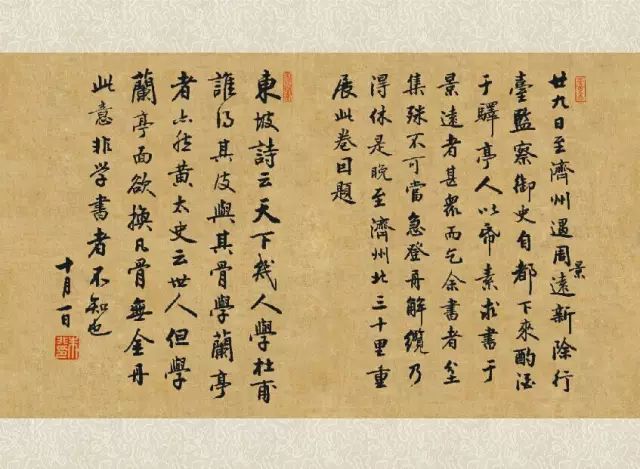 廿九日至濟州遇周景遠新除行
臺監察御史自都下來酌酒
于驛亭人以帋素求書于
景遠者甚衆而乞余書者坌
集殊不可當急登舟解纜乃
得休是晚至濟州北三十里重
展此卷囙題
東坡詩云天下幾人學杜甫
誰得其皮與其骨學蘭亭
者亦然黃太史云世人但學
蘭亭面欲換凡骨無金丹
此意非学書者不知也
十月一日